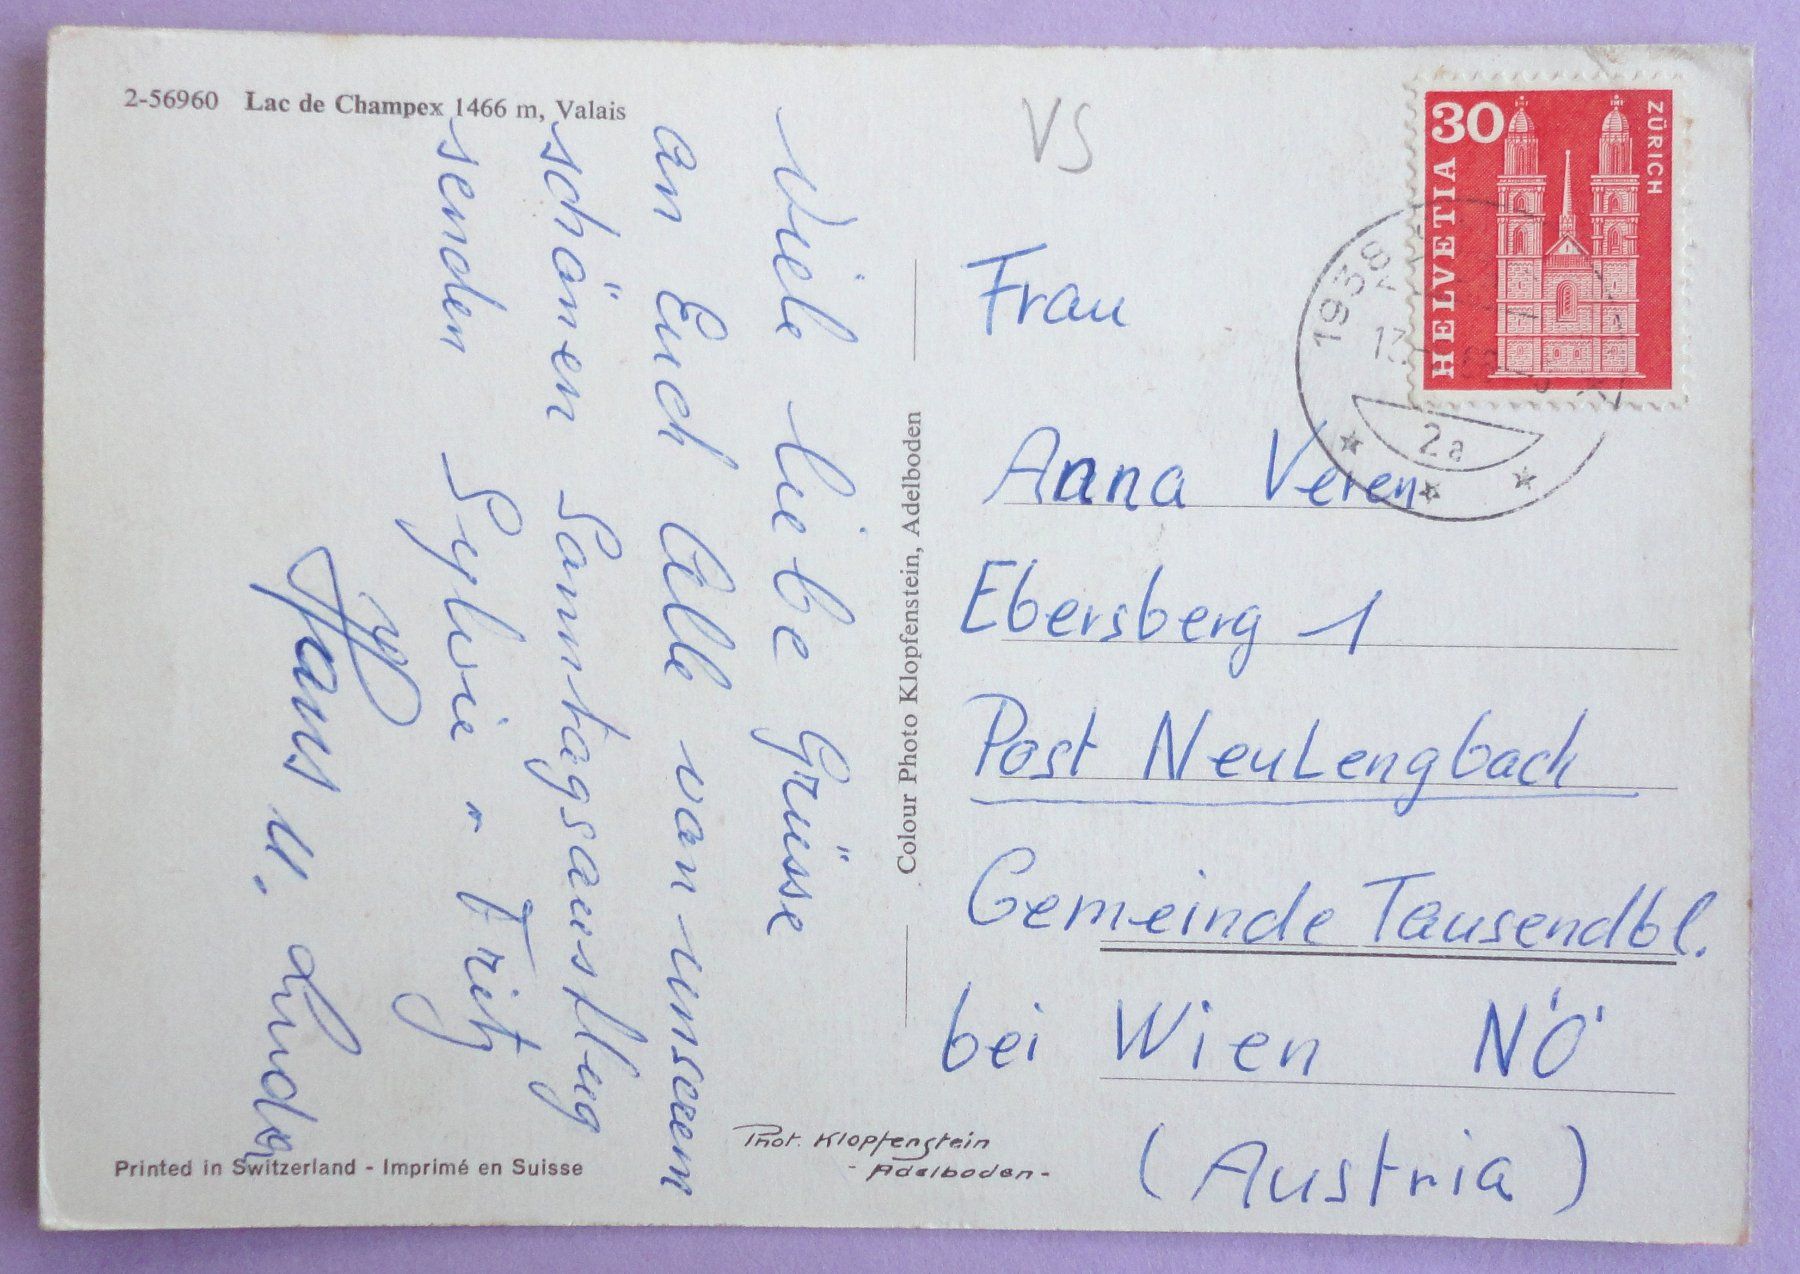 2-56960 Lac de Champex 1466 m, Valais
Viele liebe Grüsse
an Euch Alle von unserem
schönen Sonntagsausflug
senden Sylvia u Fritz
Hans u.
Colour Photo Klopfenstein, Adelboden
Phot. Klopfenstein
- Adelboden -
Printed in Switzerland - Imprimé en Suisse
VS
30
HELVETIA
ZÜRICH
1938
2a
Frau
Anna Veren
Ebersberg 1
Post Neulengbach
Gemeinde Tausendbl.
bei Wien NÖ
(Austria)